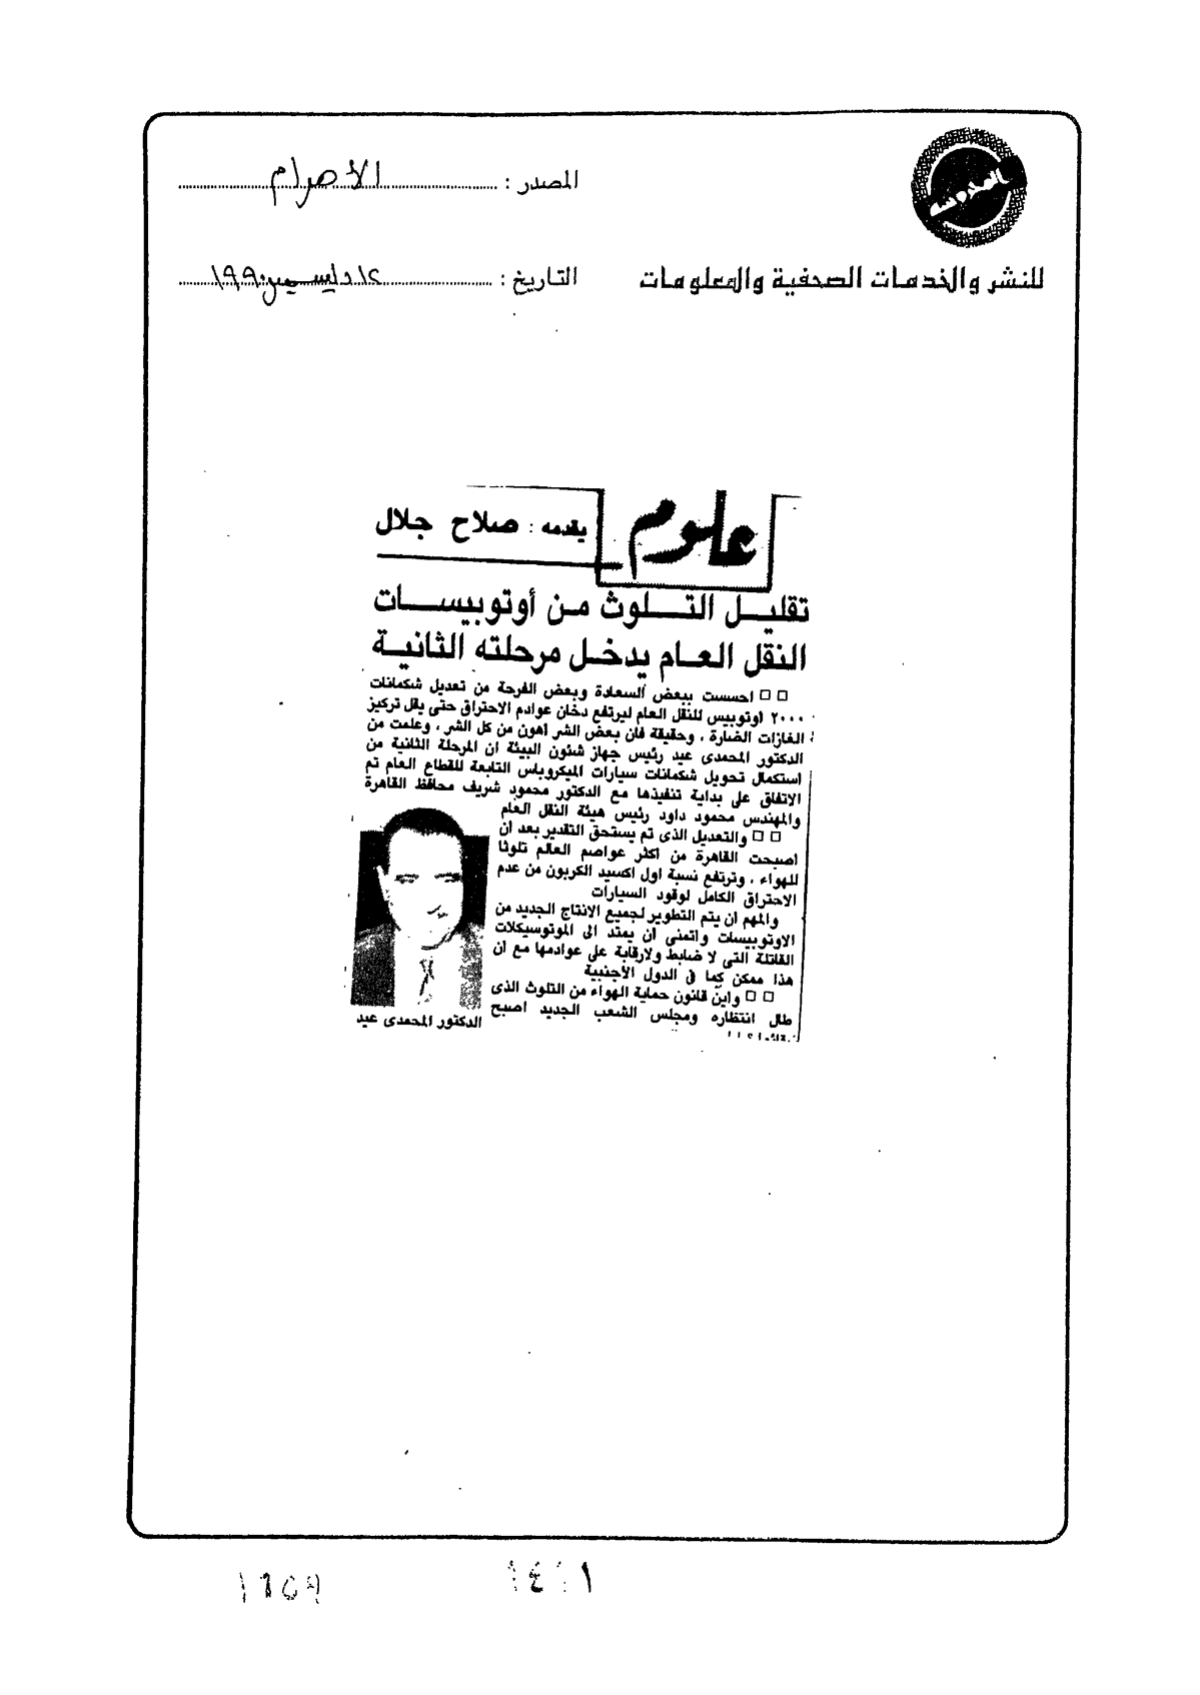 المصدر : الأهرام
للنشر والخدمات الصحفية والمعلومات
التاريخ : ١٢ ديسمبر ١٩٩٠
علوم
يقدمه : صلاح جلال
تقليل التلوث من أوتوبيسات
النقل العام يدخل مرحلته الثانية
□□ احسست ببعض السعادة وبعض الفرحة من تعديل شكمانات
٢٠٠٠ اوتوبيس للنقل العام ليرتفع دخان عوادم الاحتراق حتى يقل تركيز
الغازات الضارة ، وحقيقة فان بعض الشر اهون من كل الشر ، وعلمت من
الدكتور المحمدى عيد رئيس جهاز شئون البيئة ان المرحلة الثانية من
استكمال تحويل شكمانات سيارات الميكروباس التابعة للقطاع العام تم
الاتفاق على بداية تنفيذها مع الدكتور محمود شريف محافظ القاهرة
والمهندس محمود داود رئيس هيئة النقل العام
□□ والتعديل الذى تم يستحق التقدير بعد ان
اصبحت القاهرة من اكثر عواصم العالم تلوثا
للهواء ، وترتفع نسبة اول اكسيد الكربون من عدم
الاحتراق الكامل لوقود السيارات
والمهم ان يتم التطوير لجميع الانتاج الجديد من
الاوتوبيسات واتمنى ان يمتد الى الموتوسيكلات
القاتلة التى لا ضابط ولارقابة على عوادمها مع ان
هذا ممكن كما فى الدول الأجنبية
□□ واين قانون حماية الهواء من التلوث الذى
طال انتظاره ومجلس الشعب الجديد اصبح
الدكتور المحمدى عيد